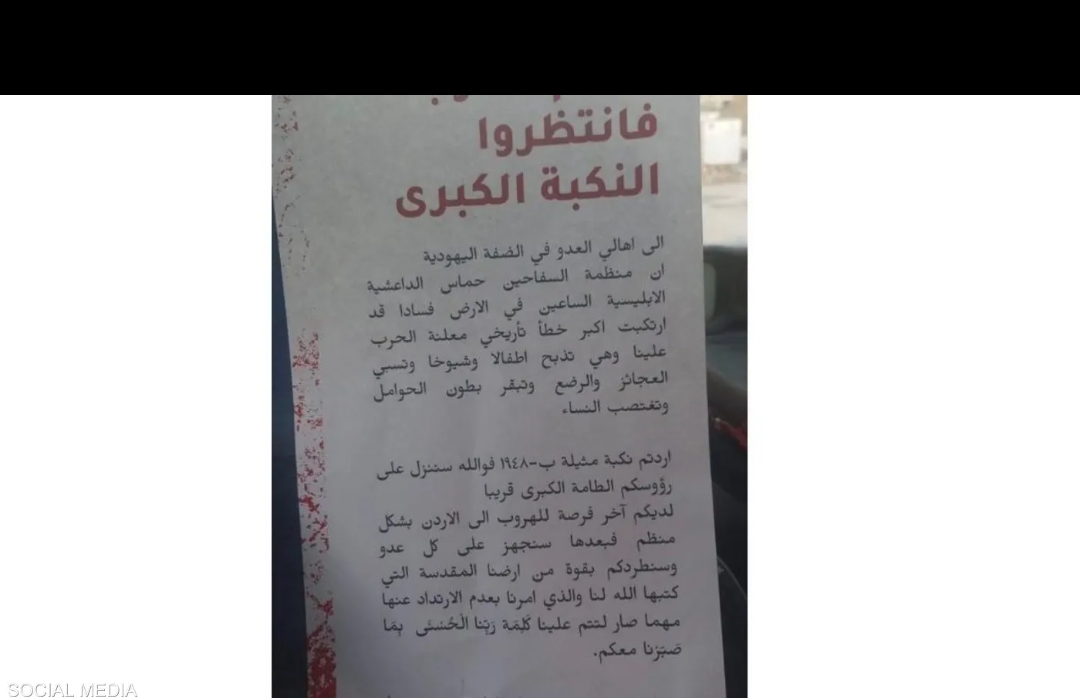 فانتظروا
النكبة الكبرى
الى اهالي العدو في الضفة اليهودية
ان منظمة السفاحين حماس الداعشية
الابليسية الساعين في الارض فسادا قد
ارتكبت اكبر خطأ تأريخي معلنة الحرب
علينا وهي تذبح اطفالا وشيوخا وتسبي
العجائز والرضع وتبقر بطون الحوامل
وتغتصب النساء
اردتم نكبة مثيلة ب-١٩٤٨ فوالله ستنزل على
رؤوسكم الطامة الكبرى قريبا
لديكم آخر فرصة للهروب الى الاردن بشكل
منظم فبعدها سنجهز على كل عدو
وسنطردكم بقوة من ارضنا المقدسة التي
كتبها الله لنا والذي امرنا بعدم الارتداد عنها
مهما صار لتتم علينا كَلِمَة رَبِّنا الْحُسْنَى بِمَا
صَبَرْنا معكم.
SOCIAL MEDIA